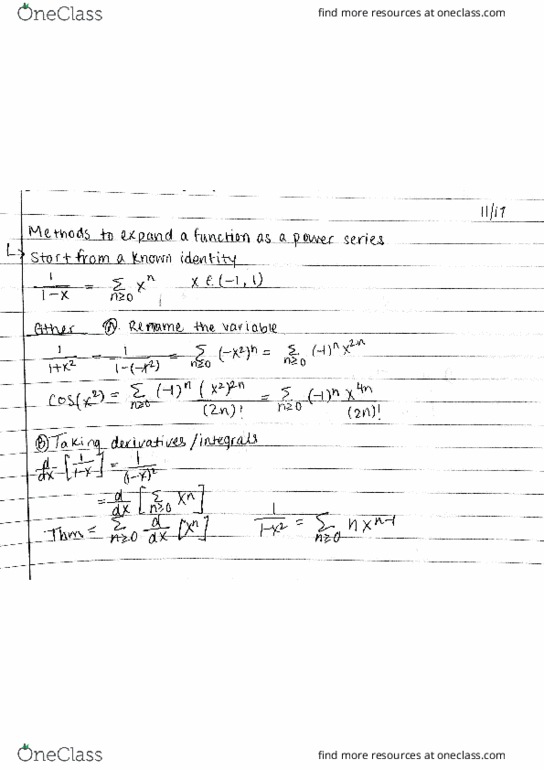 OneClass
find more resources at oneclass.com
11/17
Methods to expand a function as a power series
↳ Start from a known identity
1/(1-x) = Σ_{n≥0} x^n   x ∈ (-1, 1)
Either Ⓐ. Rename the variable
1/(1+x²) = 1/(1-(-x²)) = Σ_{n≥0} (-x²)^n = Σ_{n≥0} (-1)^n x^{2n}
cos(x²) = Σ_{n≥0} (-1)^n (x²)^{2n}/(2n)! = Σ_{n≥0} (-1)^n x^{4n}/(2n)!
Ⓑ Taking derivatives/integrals
d/dx [1/(1-x)] = 1/(1-x)²
= d/dx [Σ_{n≥0} x^n]
Thm = Σ_{n≥0} d/dx [x^n]   1/(1-x²) = Σ_{n≥0} n x^{n-1}
OneClass
find more resources at oneclass.com